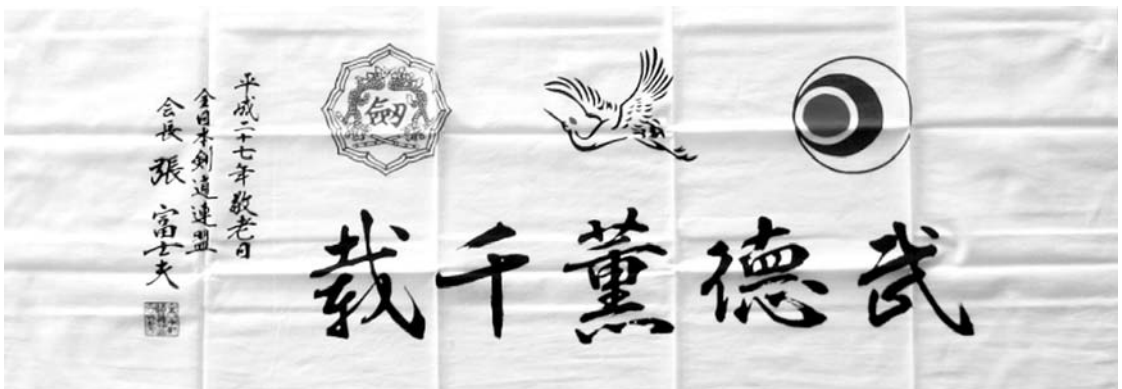 武徳薫千載
剱
平成二十七年敬老日
全日本剣道連盟
会長 張 富士夫